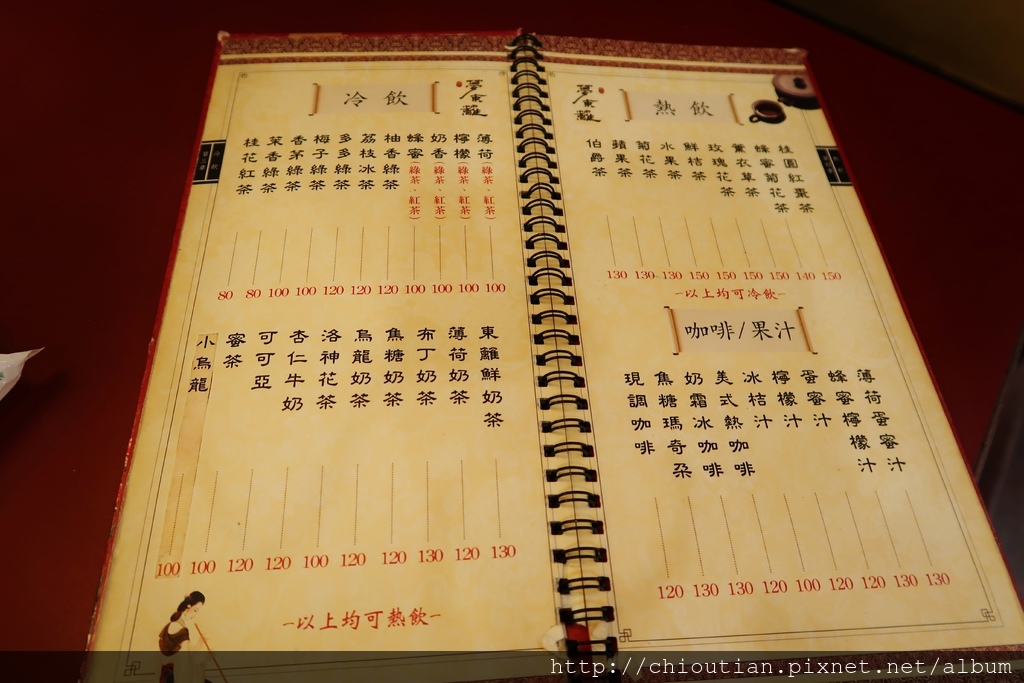 夢東籬
冷飲
薄荷(綠茶、紅茶) 100
檸檬(綠茶、紅茶) 100
奶香(綠茶、紅茶) 100
蜂蜜(綠茶、紅茶) 100
柚香綠茶 120
荔枝冰茶 120
多多綠茶 120
梅子綠茶 100
香茅綠茶 100
茉香綠茶 80
桂花紅茶 80
東籬鮮奶茶 130
薄荷奶茶 120
布丁奶茶 130
焦糖奶茶 120
烏龍奶茶 120
洛神花茶 100
杏仁牛奶 120
可可亞 120
蜜茶 100
小烏龍 100
-以上均可熱飲-
夢東籬
熱飲
桂圓紅棗茶 150
蜂蜜菊花茶 140
薰衣草茶 150
玫瑰花茶 150
鮮桔茶 150
水果茶 150
菊花茶 130
蘋果茶 130
伯爵茶 130
-以上均可冷飲-
咖啡/果汁
薄荷蛋蜜汁 130
蜂蜜檸檬汁 130
蛋蜜汁 120
檸檬汁 120
冰桔汁 100
美式熱咖啡 120
奶霜冰咖啡 130
焦糖瑪奇朶 130
現調咖啡 120
http://chioutian.pixnet.net/album